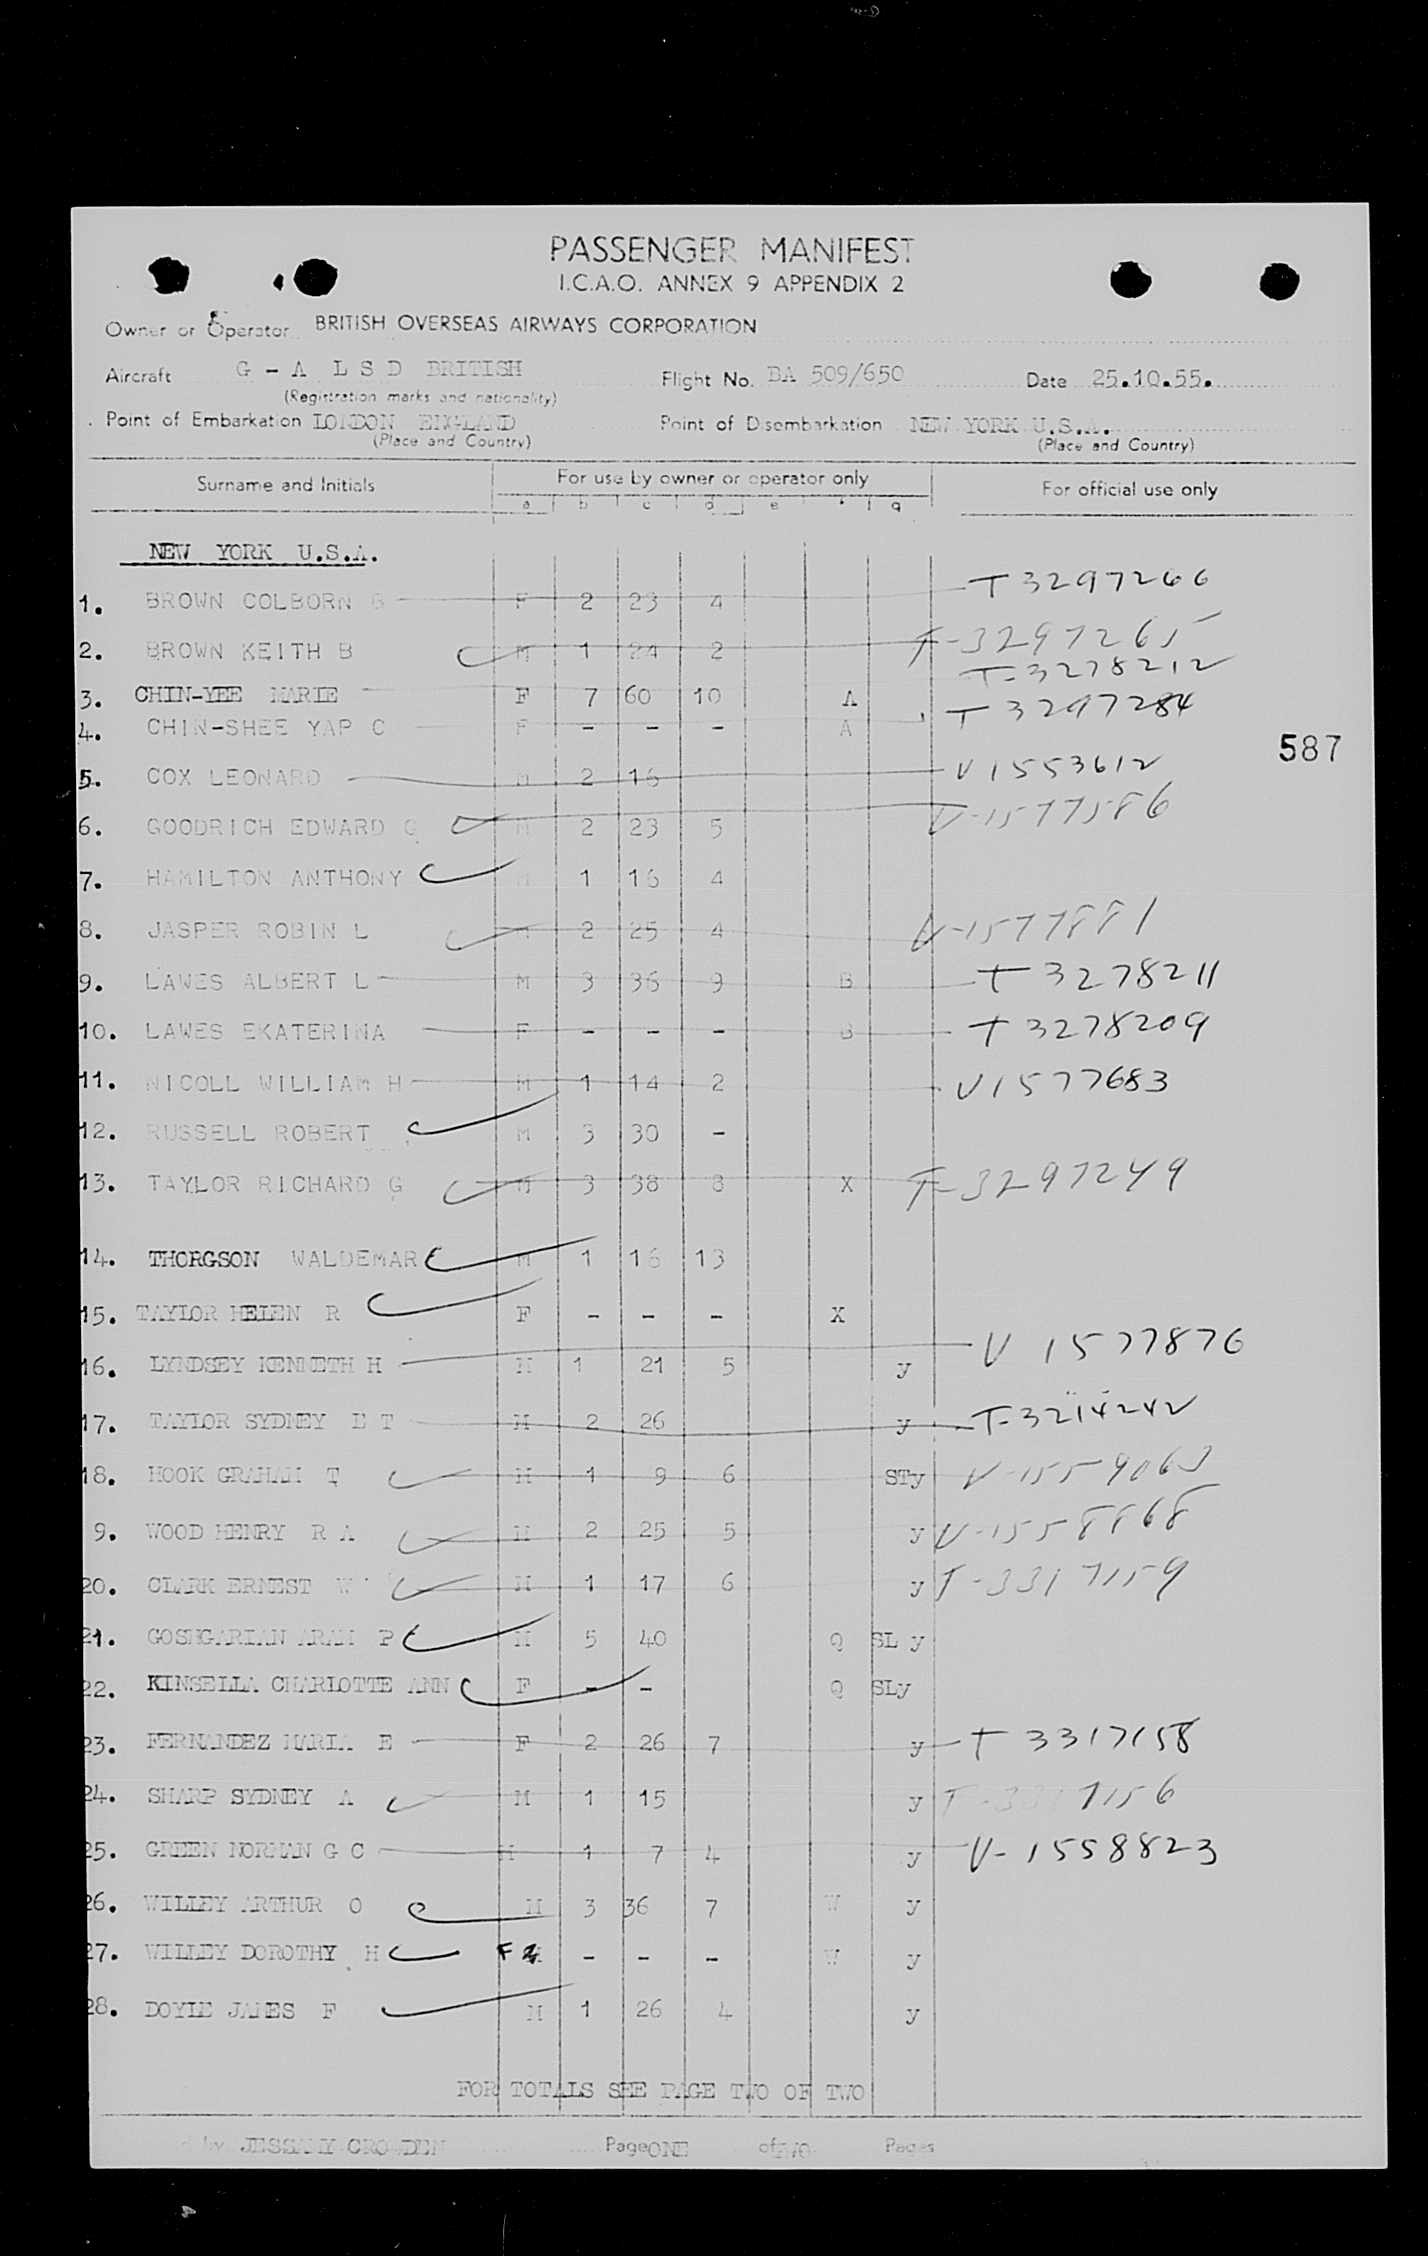 PASSENGER MANIFEST
I.C.A.O. ANNEX 9 APPENDIX 2
Owner or Operator BRITISH OVERSEAS AIRWAYS CORPORATION
Aircraft G - A L S D BRITISH Flight No. BA 509/650 Date 25.10.55.
(Registration marks and nationality)
Point of Embarkation LONDON ENGLAND Point of Disembarkation NEW YORK U.S.A.
(Place and Country) (Place and Country)
Surname and Initials For use by owner or operator only For official use only
a b c d e f g
NEW YORK U.S.A.
1. BROWN COLBORN G F 2 23 4 T 3297266
2. BROWN KEITH B M 1 24 2 T-3297265
3. CHIN-YEE MARIE F 7 60 10 A T-3278212
4. CHIN-SHEE YAP C F - - - A T 3297284
587
5. COX LEONARD M 2 16 V 1553612
6. GOODRICH EDWARD G M 2 23 5 V-1577586
7. HAMILTON ANTHONY M 1 16 4
8. JASPER ROBIN L M 2 25 4 V-1577881
9. LAWES ALBERT L M 3 36 9 B T 3278211
10. LAWES EKATERINA F - - - B T 3278209
11. NICOLL WILLIAM H M 1 14 2 V1577683
12. RUSSELL ROBERT M 3 30 -
13. TAYLOR RICHARD G M 3 38 8 X T-3297249
14. THORGSON WALDEMAR M 1 16 13
15. TAYLOR HELEN R F - - - X
16. LYNDSEY KENNETH H M 1 21 5 y V 1577876
17. TAYLOR SYDNEY E T M 2 26 y T-3214242
18. HOOK GRAHAM T M 1 9 6 STy V-1559063
9. WOOD HENRY R A M 2 25 5 y V-1558868
20. CLARK ERNEST W M 1 17 6 y T-3317159
21. GOSHGARIAN ARAM P M 5 40 Q SL y
22. KINSELLA CHARLOTTE ANN F - - Q SLy
23. FERNANDEZ MARIA E F 2 26 7 y T 3317158
24. SHARP SYDNEY A M 1 15 y T-3317156
25. GREEN NORMAN G C M 1 7 4 y V-1558823
26. WILLEY ARTHUR O M 3 36 7 W y
27. WILLEY DOROTHY H F - - - W y
28. DOYLE JAMES F M 1 26 4 y
FOR TOTALS SEE PAGE TWO OF TWO
by Page ONE of TWO Pages